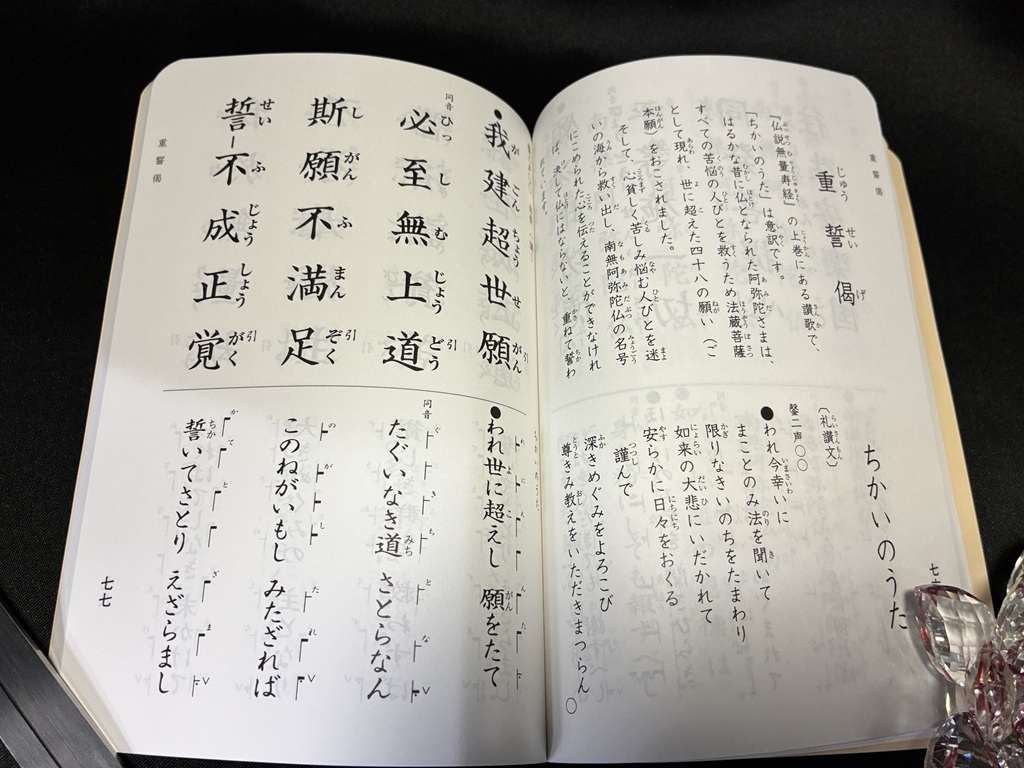 重誓偈
重誓偈
『仏説無量寿経』の上巻にある讃歌で、
「ちかいのうた」は意訳です。
はるかな昔に仏となられた阿弥陀さまは、
すべての苦悩の人びとを救うため法蔵菩薩
として現れ、世に超えた四十八の願い（ご
本願）をおこされました。
そして、心貧しく苦しみ悩む人びとを迷
いの海から救い出し、南無阿弥陀仏の名号
にこめられた心を伝えることができなけれ
ば、決して仏にはならないと、重ねて誓わ
れています。
ちかいのうた
〔礼讃文〕
鏧二声〇〇
●われ今幸いに
まことのみ法を聞いて
限りなきいのちをたまわり
如来の大悲にいだかれて
安らかに日々をおくる
謹んで
深きめぐみをよろこび
尊きみ教えをいただきまつらん〇
●我建超世願
同音
必至無上道
斯願不満足
誓不成正覚
重誓偈
●われ世に超えし 願をたて
同音
たぐいなき道 さとらなん
このねがいもし みたざれば
誓いてさとり えざらまし
七七